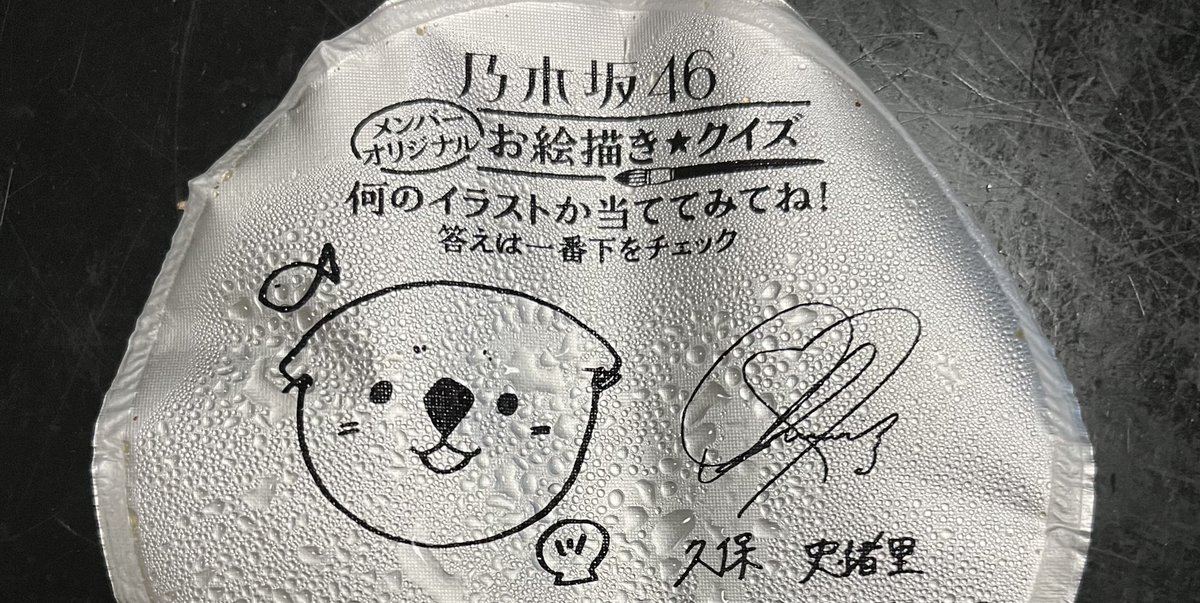 乃木坂46
メンバー
オリジナル
お絵描き★クイズ
何のイラストか当ててみてね!
答えは一番下をチェック
久保 史緒里